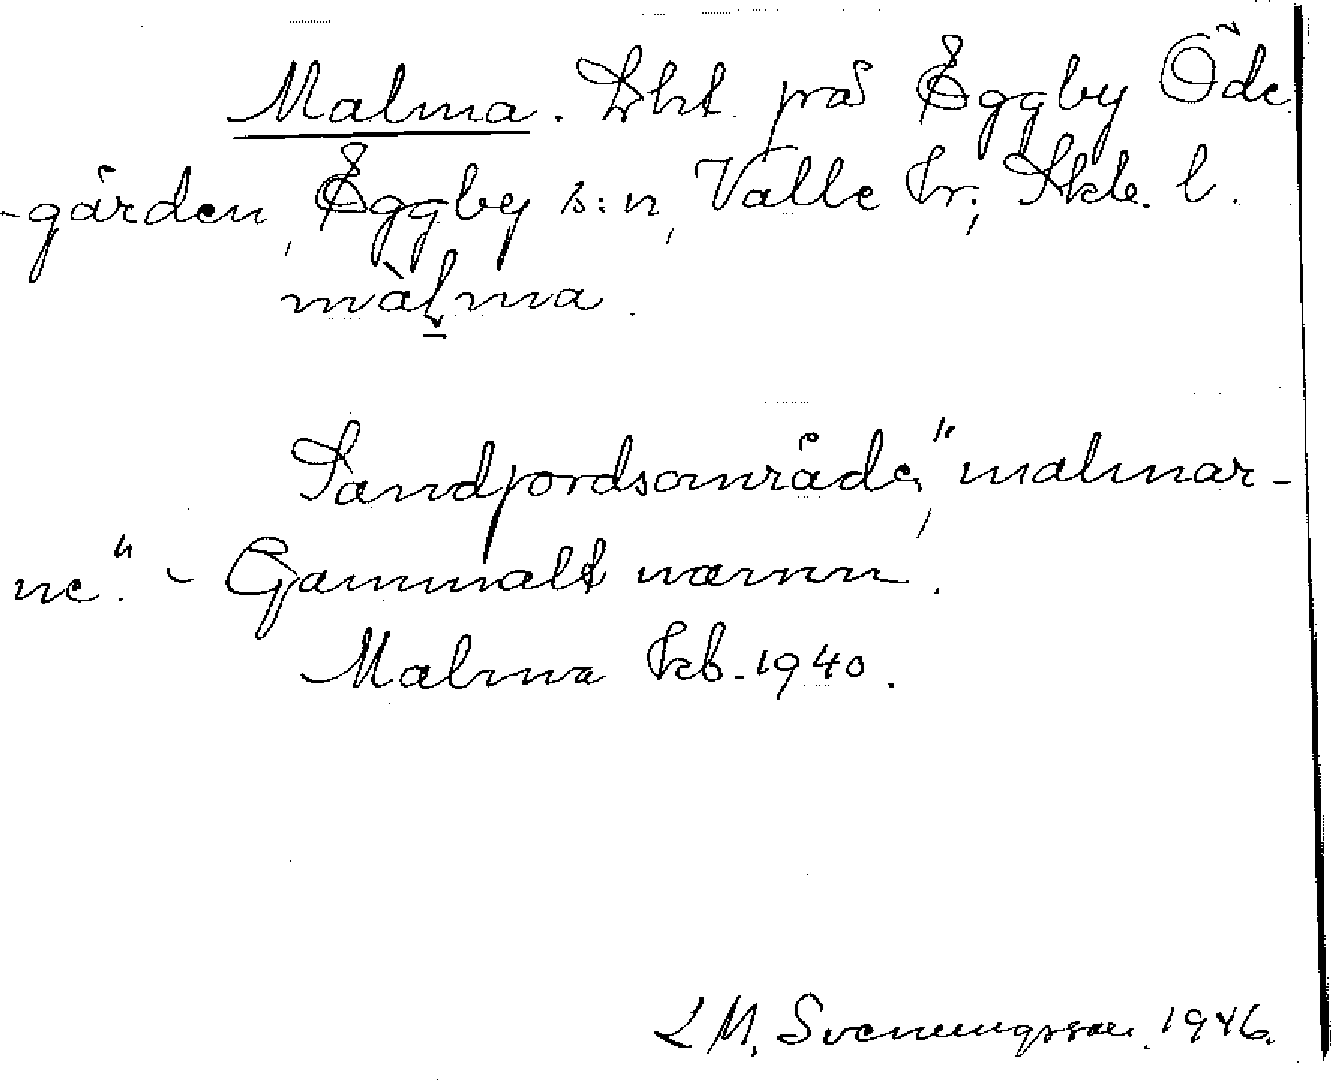 Malma. Lht. på Eggby Öde
-gården, Eggby s:n, Valle hr; Skb. l.
màlma.
Sandjordsområde, "malmar-
ne". - Gammalt namn.
Malma Kb. 1940.
L M. Svenungsson. 1946.